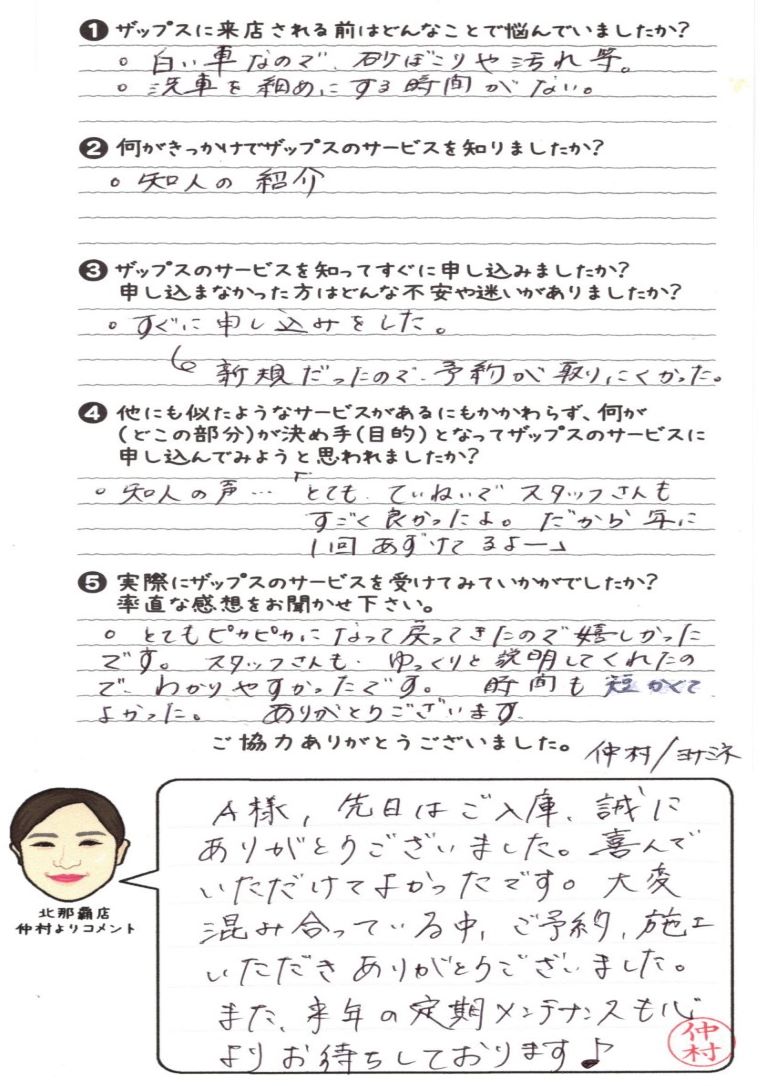 ❶ ザップスに来店される前はどんなことで悩んでいましたか?
○ 白い車なので、砂ぼこりや汚れ等。
○ 洗車を細めにする時間がない。
❷ 何がきっかけでザップスのサービスを知りましたか?
○ 知人の紹介
❸ ザップスのサービスを知ってすぐに申し込みましたか?
申し込まなかった方はどんな不安や迷いがありましたか?
○ すぐに申し込みをした。
新規だったので、予約が取りにくかった。
❹ 他にも似たようなサービスがあるにもかかわらず、何が
(どこの部分)が決め手(目的)となってザップスのサービスに
申し込んでみようと思われましたか?
○ 知人の声…「とても、ていねいで スタッフさんも
すごく良かったよ。だから 年に
1回 あずけてるよー」
❺ 実際にザップスのサービスを受けてみていかがでしたか?
率直な感想をお聞かせ下さい。
○ とてもピカピカになって戻ってきたので嬉しかった
です。 スタッフさんも、ゆっくりと説明してくれたの
で、わかりやすかったです。 時間も 短かくて
よかった。 ありがとうございます。
ご協力ありがとうございました。
仲村/ヨナミネ
A様, 先日はご入庫、誠に
ありがとうございました。喜んで
いただけてよかったです。大変
混み合っている中, ご予約, 施工
いただきありがとうございました。
また、来年の定期メンテナンスも心
よりお待ちしております♪
北那覇店
仲村よりコメント
仲村